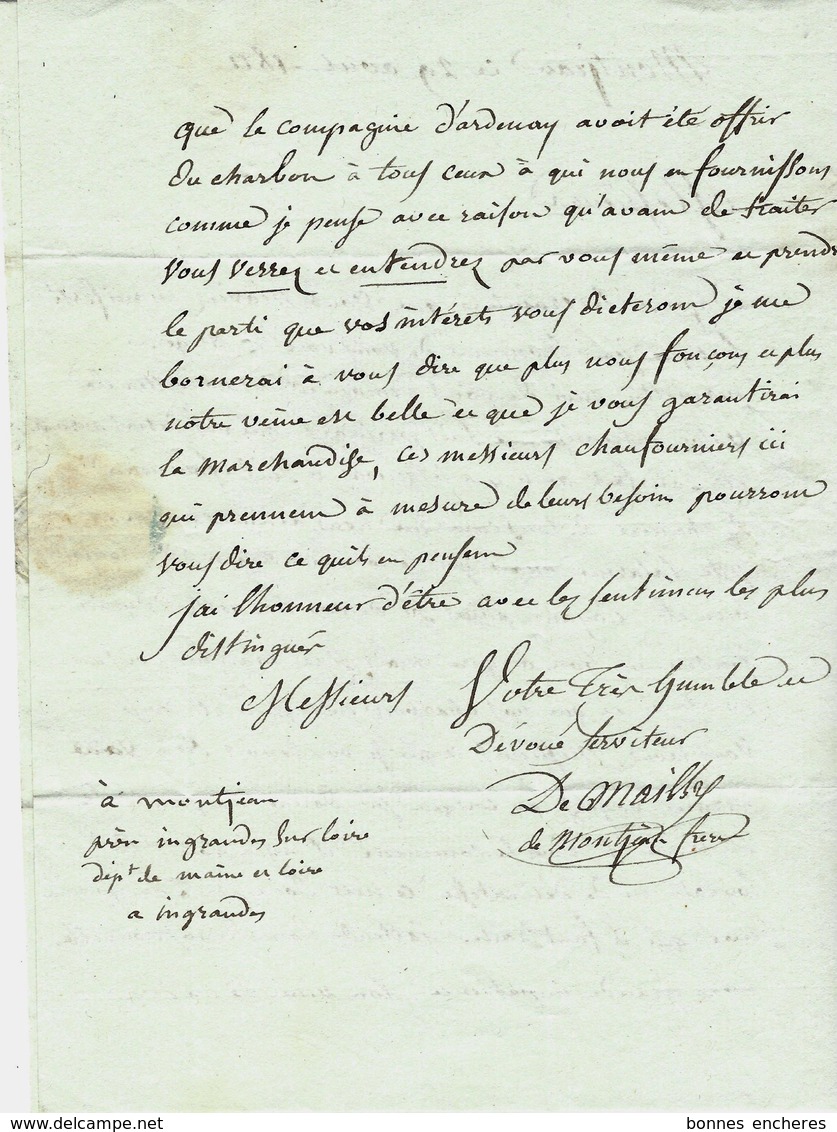 que la compagnie d'ardenay avoit été offrir
du charbon à tous ceux à qui nous en fournissons
comme je pense avec raison qu'avant de traiter
vous verrez et entendrez par vous même et prendr
le parti que vos intérets vous dicteront je me
bornerai à vous dire que plus nous fonçons et plus
notre veine est belle et que je vous garantirai
la marchandise, ces messieurs chaufourniers ici
qui prennent à mesure de leurs besoins pourront
vous dire ce quils en pensent
jai lhonneur d'être avec les sentimens les plus
distingués
Messieurs Votre très humble et
Dévoué serviteur
De Mailly
de Montjean frere
à montjean
près ingrandes sur loire
dépt de maine et loire
a ingrandes
bonnes encheres